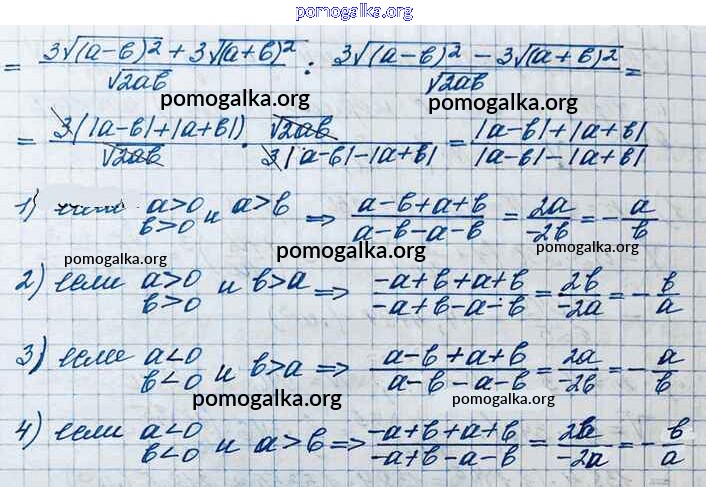 pomogalka.org
= 3√(a-в)² + 3√(a+в)² / √2aв : 3√(a-в)² - 3√(a+в)² / √2aв =
pomogalka.org pomogalka.org
= 3(|a-в|+|a+в|) / √2aв · √2aв / 3|a-в|-|a+в| = |a-в|+|a+в| / |a-в|-|a+в|
1) a>0 в>0 и a>в ⇒ a-в+a+в / a-в-a-в = 2a / -2в = - a/в
pomogalka.org pomogalka.org pomogalka.org
2) если a>0 в>0 и в>a ⇒ -a+в+a+в / -a+в-a-в = 2в / -2a = - в/a
3) если a<0 в<0 и в>a ⇒ a-в+a+в / a-в-a-в = 2a / -2в = - a/в
pomogalka.org pomogalka.org
4) если a<0 в<0 и a>в ⇒ -a+в+a+в / -a+в-a-в = 2в / -2a = - в/a